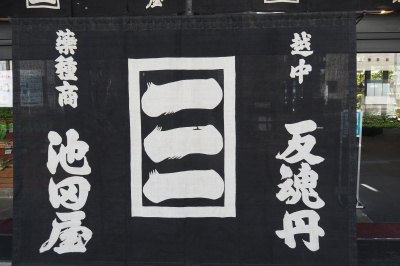 越中
反魂丹
三
薬種商
池田屋
屋